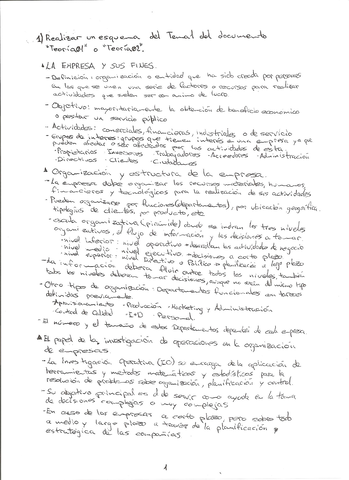 1) Realizar un esquema del Tema1 del documento
"Teoria01" o "Teoria02".
▲ LA EMPRESA Y SUS FINES.
- Definición: organización o entidad que ha sido creada por personas
en las que se unen una serie de factores o recursos para realizar
actividades que suelen ser con animo de lucro
- Objetivo: mayoritariamente la obtención de beneficio economico
o prestar un servicio público
- Actividades: comerciales, financieras, industriales o de servicio
- Grupos de interes: grupos que tienen interes en una empresa ya que
pueden afectar o ser afectados por las actividades de esta.
· Propietarios Inversores Trabajadores · Acreedores · Administración
· Directivos · Clientes · Ciudadanos
▲ Organización y estructura de la empresa.
- La empresa debe organizar los recursos materiales, humanos,
financieros y tecnologicos para la realización de sus actividades
- Pueden organizarse por funciones (departamentos), por ubicación geográfica,
tipologias de clientes, por producto, etc
organizativa (piramide) donde se indican los tres niveles
organizativos, el flujo de información y las decisiones a tomar
· nivel inferior: nivel operativo → desarrollan las actividades de negocio
· nivel medio: nivel ejecutivo → decisiones a corto plazo
· nivel superior: nivel Directivo o Politico → planifican a largo plazo
- La información debera fluir entre todos los niveles, también
todos los niveles deberan tomar decisiones, aunque no sean del mismo tipo
- Otro tipos de organización: Departamentos funcionales en tareas
definidas previamente
· Aprovisionamientos · Producción · Marketing y Administración
· Control de Calidad · I+D · Personal
- El número y el tamaño de estos Departamentos dependera de cada empresa
▲ El papel de la investigación de operaciones en la organización
de empresas.
- La Investigación Operativa (IO) se encarga de la aplicación de
herramientas y metodos matematicos y estadísticos para la
resolución de problemas sobre organización, planificación y control.
- Su objetivo principal es el de servir como ayuda en la toma
de decisiones complejas o muy complejas
- En caso de las empresas a corto plazo, pero sobre todo
a medio y largo plazo a través de la planificación y
estratégica de las compañias.
1